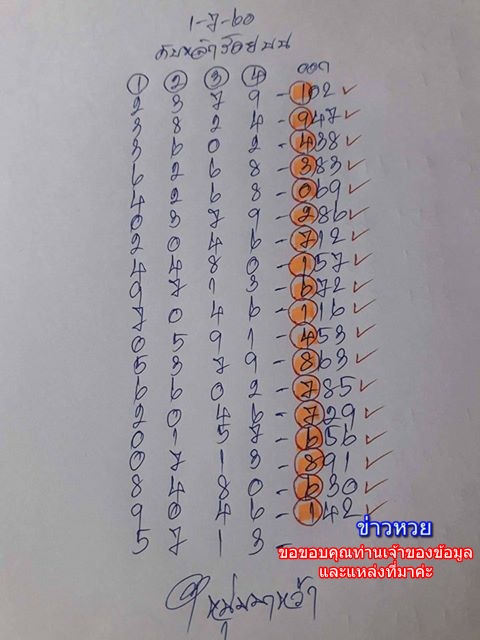 1-7-60
ออก
① ② ③ ④
2 3 7 9 - 102 ✓
3 8 2 4 - 947 ✓
3 6 0 2 - 438 ✓
6 2 6 8 - 383 ✓
4 2 6 8 - 069 ✓
0 3 7 9 - 286 ✓
2 0 4 6 - 712 ✓
4 4 8 0 - 157 ✓
9 7 1 3 - 672 ✓
7 0 4 6 - 116 ✓
0 5 9 1 - 453 ✓
5 3 7 9 - 863 ✓
6 6 0 2 - 785 ✓
2 0 4 6 - 729 ✓
0 1 5 7 - 656 ✓
0 7 1 3 - 891 ✓
8 4 8 0 - 630 ✓
9 0 4 6 - 142 ✓
5 7 1 3 -
ข่าวหวย
ขอขอบคุณท่านเจ้าของข้อมูล
และแหล่งที่มาค่ะ